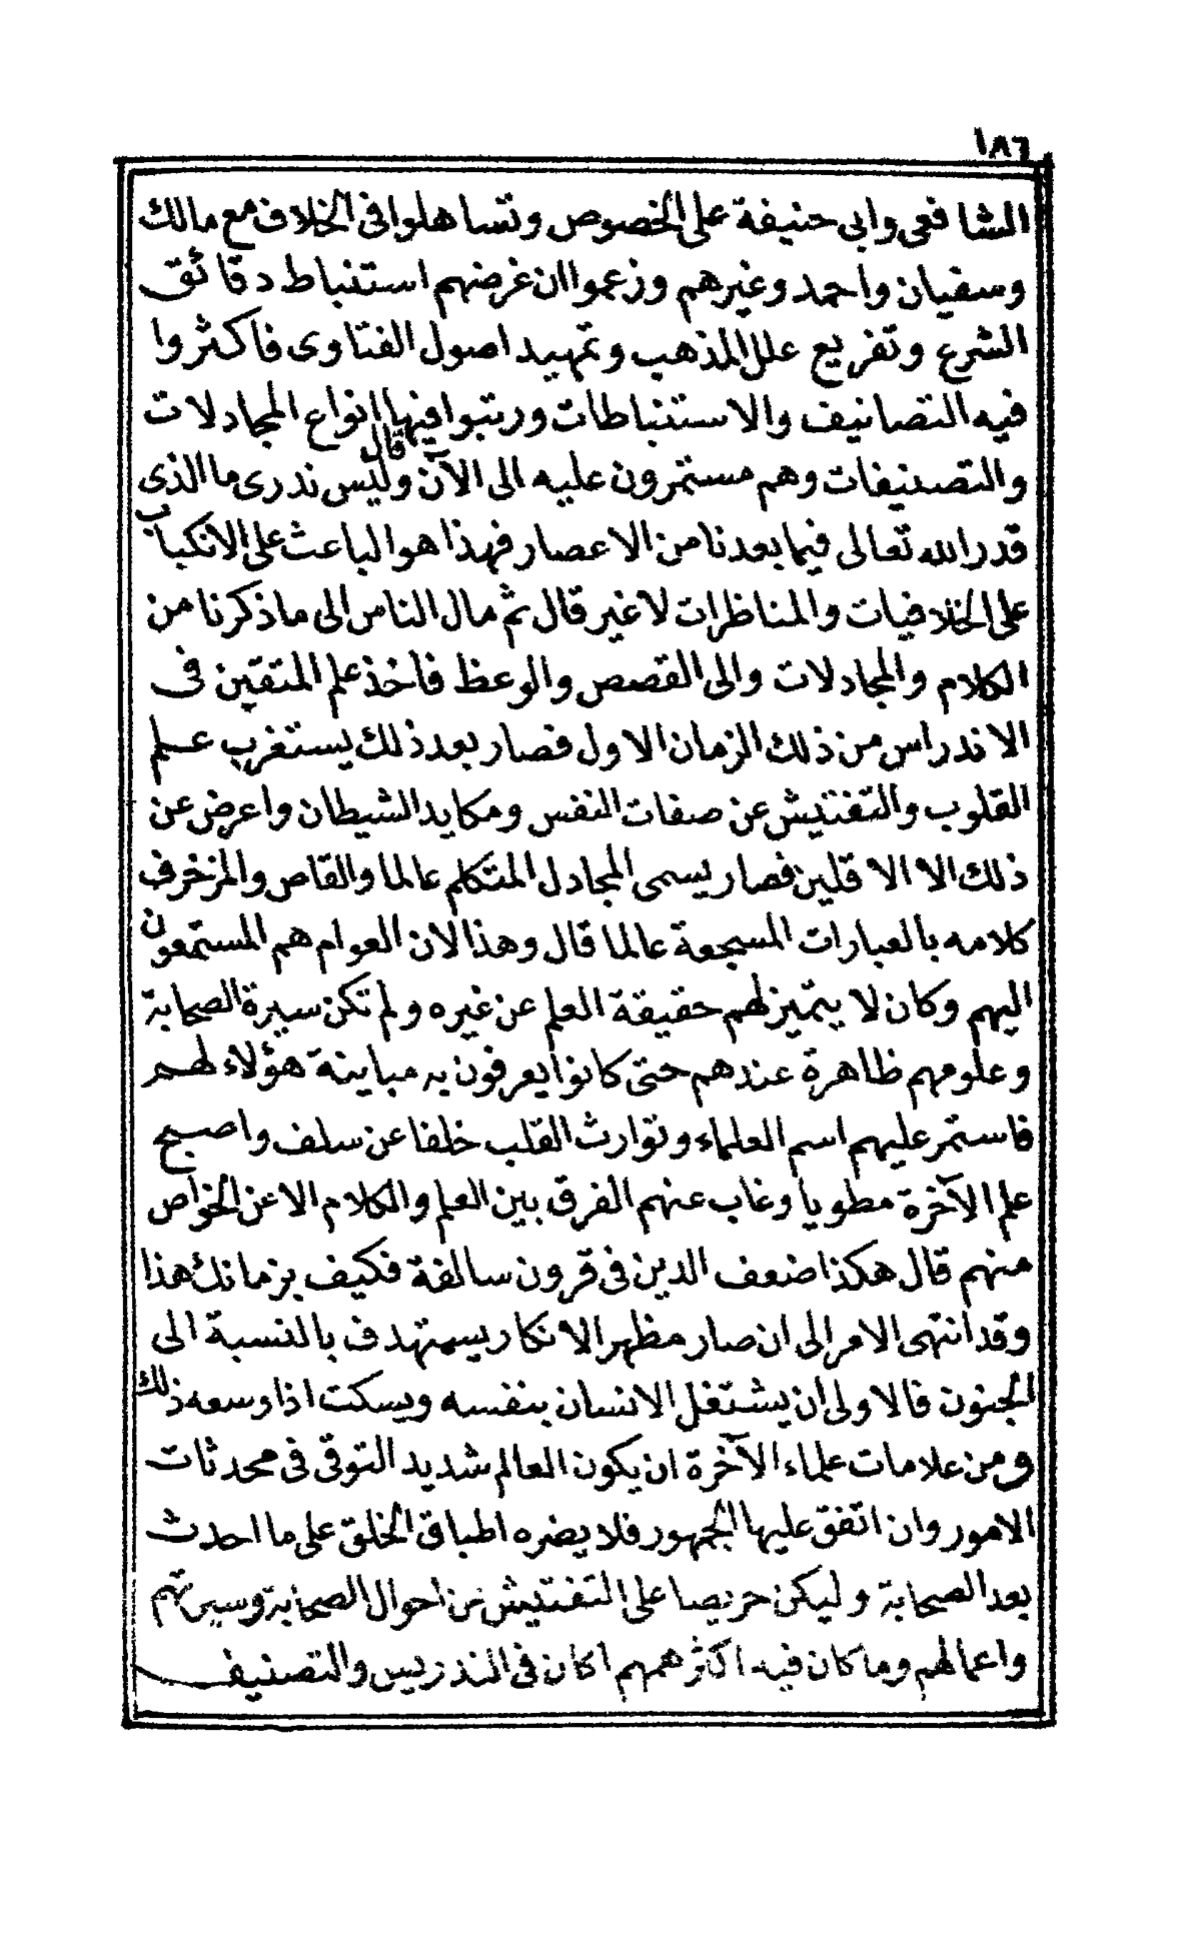 ١٨٦
الشافعى وابى حنيفة على الخصوص وتساهلوا فى الخلاف مع مالك
وسفيان واحمد وغيرهم وزعموا ان غرضهم استنباط دقائق
الشرع وتفريع علل المذهب وتمهيد اصول الفتاوى فاكثروا
فيه التصانيف والاستنباطات ورتبوا فيها انواع المجادلات
والتصنيفات وهم مستمرون عليه الى الآن قال وليس ندرى ما الذى
قدر الله تعالى فيما بعدنا من الاعصار فهذا هو الباعث على الانكباب
على الخلافيات والمناظرات لا غير قال ثم مال الناس الى ما ذكرنا من
الكلام والمجادلات والى القصص والوعظ فأخذ علم المتقين فى
الاندراس من ذلك الزمان الاول فصار بعد ذلك يستغرب علم
القلوب والتفتيش عن صفات النفس ومكايد الشيطان واعرض عن
ذلك الا الاقلين فصار يسمى المجادل المتكلم عالما والقاص والمزخرف
كلامه بالعبارات المسجعة عالما قال وهذا لان العوام هم المستمعون
اليهم وكان لا يتميز لهم حقيقة العلم عن غيره ولم تكن سيرة الصحابة
وعلومهم ظاهرة عندهم حتى كانوا يعرفون به مباينة هؤلاء لهم
فاستمر عليهم اسم العلماء وتوارث القلب خلفا عن سلف واصبح
علم الآخرة مطويا وغاب عنهم الفرق بين العلم والكلام الا عن الخواص
منهم قال هكذا ضعف الدين فى قرون سالفة فكيف بزمانك هذا
وقد انتهى الامر الى ان صار مظهر الانكار يستهدف بالنسبة الى
الجنون فالاولى ان يشتغل الانسان بنفسه ويسكت اذا وسعه ذلك
ومن علامات علماء الآخرة ان يكون العالم شديد التوقى فى محدثات
الامور وان اتفق عليها الجمهور فلا يضره اطباق الخلق على ما احدث
بعد الصحابة وليكن حريصا على التفتيش عن احوال الصحابة وسيرتهم
واعمالهم وما كان فيه اكثر همهم اكان فى التدريس والتصنيف